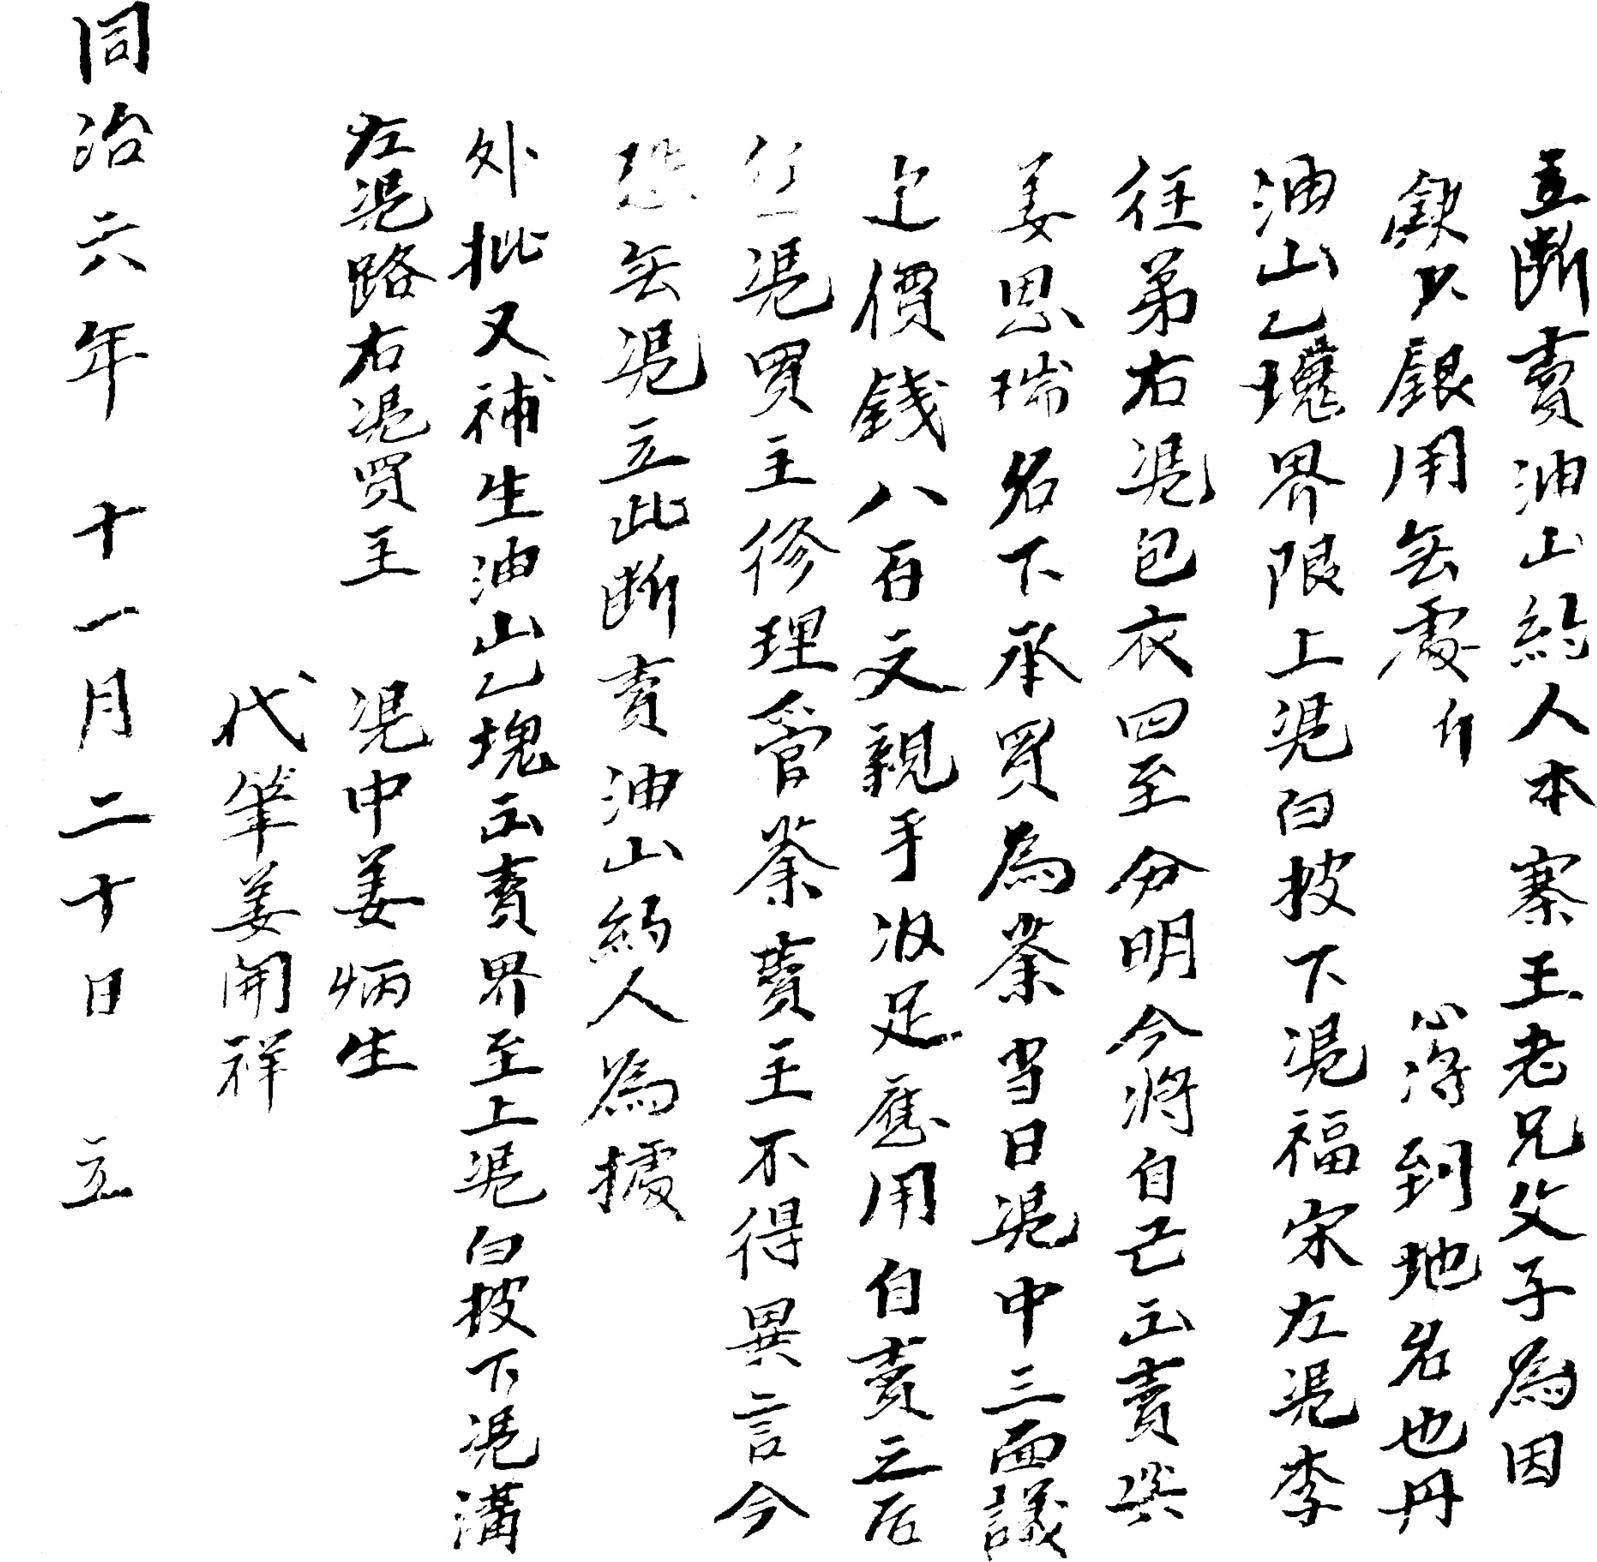 立斷賣油山約人本寨王老兄父子為因
缺少銀用無處 心浔到地名也丹
油山乙塊界限上凭白披下凭福宋左凭李
往弟右凭包衣四至分明今將自己出賣與
姜恩瑞名下承買為業当日凭中三面議
定價錢八百文親手收足應用自賣之后
任凭買主修理管業賣主不得異言今
恐無凭立此斷賣油山約人為據
外批又補生油山乙塊出賣界至上凭白披下凭溝
左凭路右凭買主 凭中姜炳生
代筆姜開祥
同治六年 十一月二十日 立